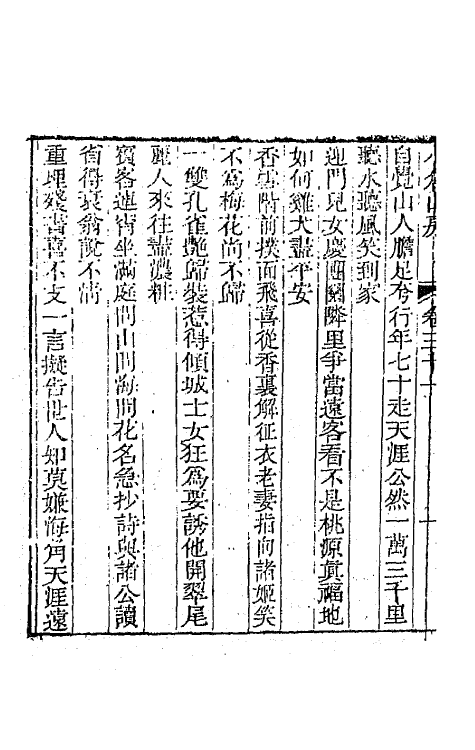 小倉山房
卷三十一
自覺山人膽足夸行年七十走天涯公然一萬三千里
聽水聽風笑到家
迎門兒女慶團圞隣里爭當遠客看不是桃源眞福地
如何雞犬盡平安
香雲階前撲面飛喜從香裏解征衣老妻指向諸姬笑
不爲梅花尚不歸
一雙孔雀艶歸裝惹得傾城士女狂爲要誘他開翠尾
麗人來往盡濃粧
賓客連宵坐滿庭問山問海問花名急抄詩與諸公讀
省得衰翁說不淸
重理殘書喜不支一言擬告世人知莫嫌海角天涯遠